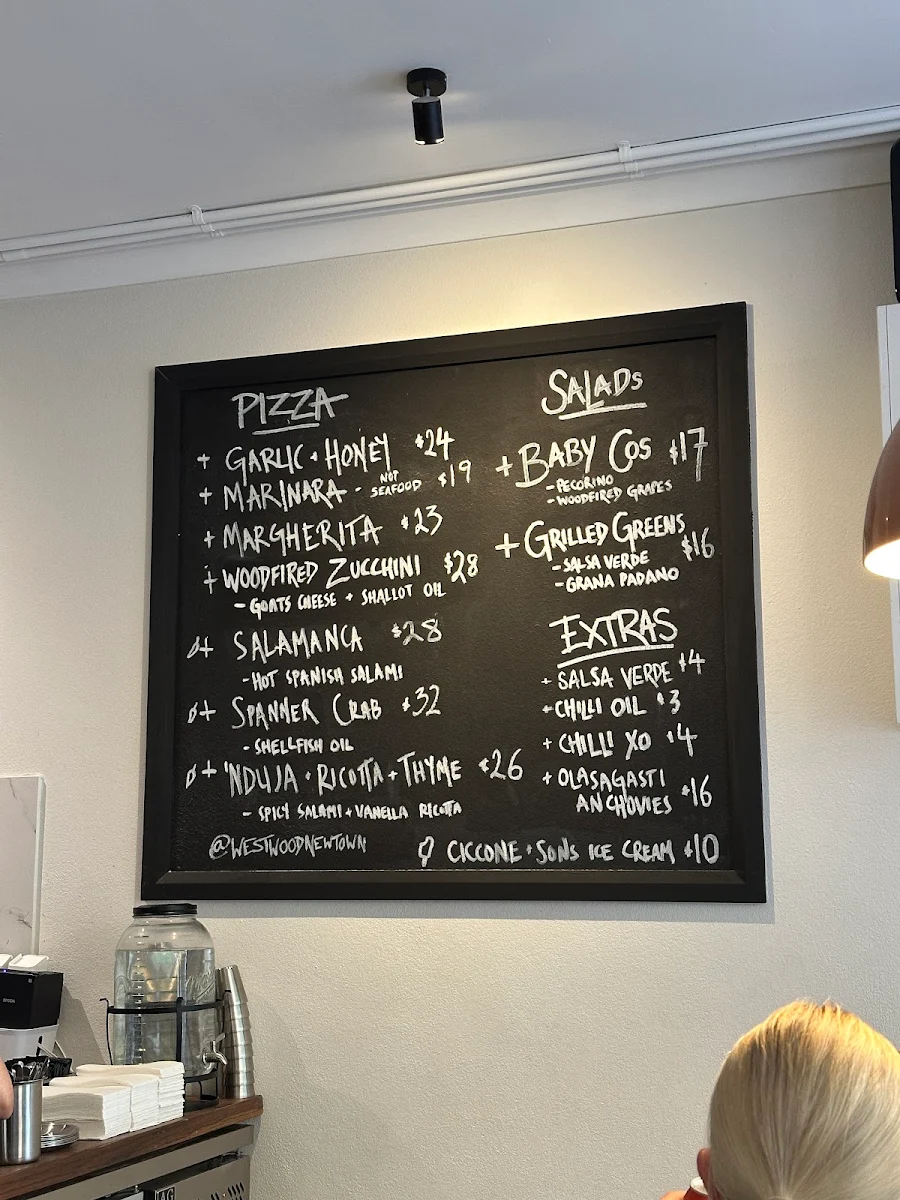 PIZZA
+ GARLIC + HONEY $24
+ MARINARA - NOT SEAFOOD $19
+ MARGHERITA $23
+ WOODFIRED ZUCCHINI $28
- GOATS CHEESE + SHALLOT OIL
+ SALAMANCA $28
- HOT SPANISH SALAMI
+ SPANNER CRAB $32
- SHELLFISH OIL
+ 'NDUJA + RICOTTA + THYME $26
- SPICY SALAMI + VANELLA RICOTTA
@WESTWOODNEWTOWN
SALADS
+ BABY COS $17
- PECORINO
- WOODFIRED GRAPES
+ GRILLED GREENS $16
- SALSA VERDE
- GRANA PADANO
EXTRAS
+ SALSA VERDE $4
+ CHILLI OIL $3
+ CHILLI XO $4
+ OLASAGASTI
ANCHOVIES $16
CICCONE + SONS ICE CREAM $10